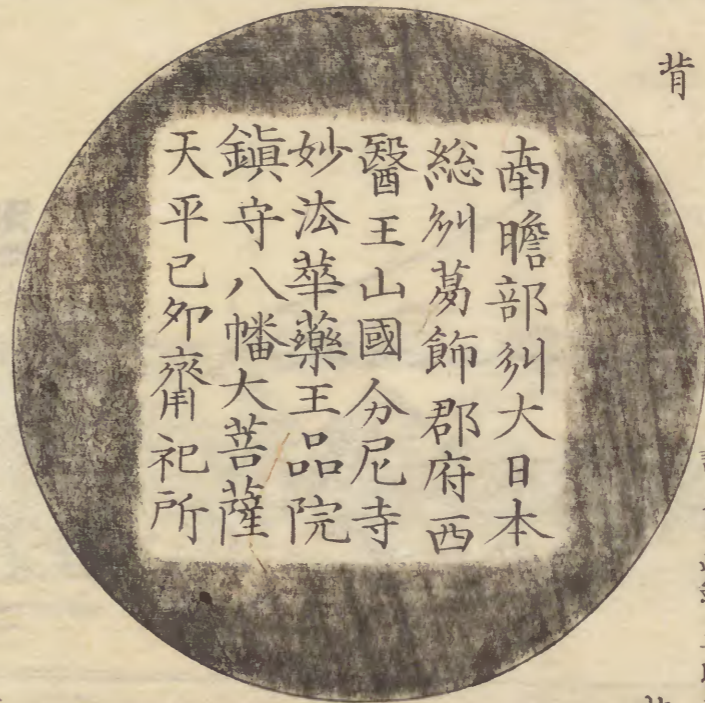 背
南瞻部刕大日本
総刕葛飾郡府西
醫王山國分尼寺
妙法華藥王品院
鎭守八幡大菩薩
天平己夘齋祀所